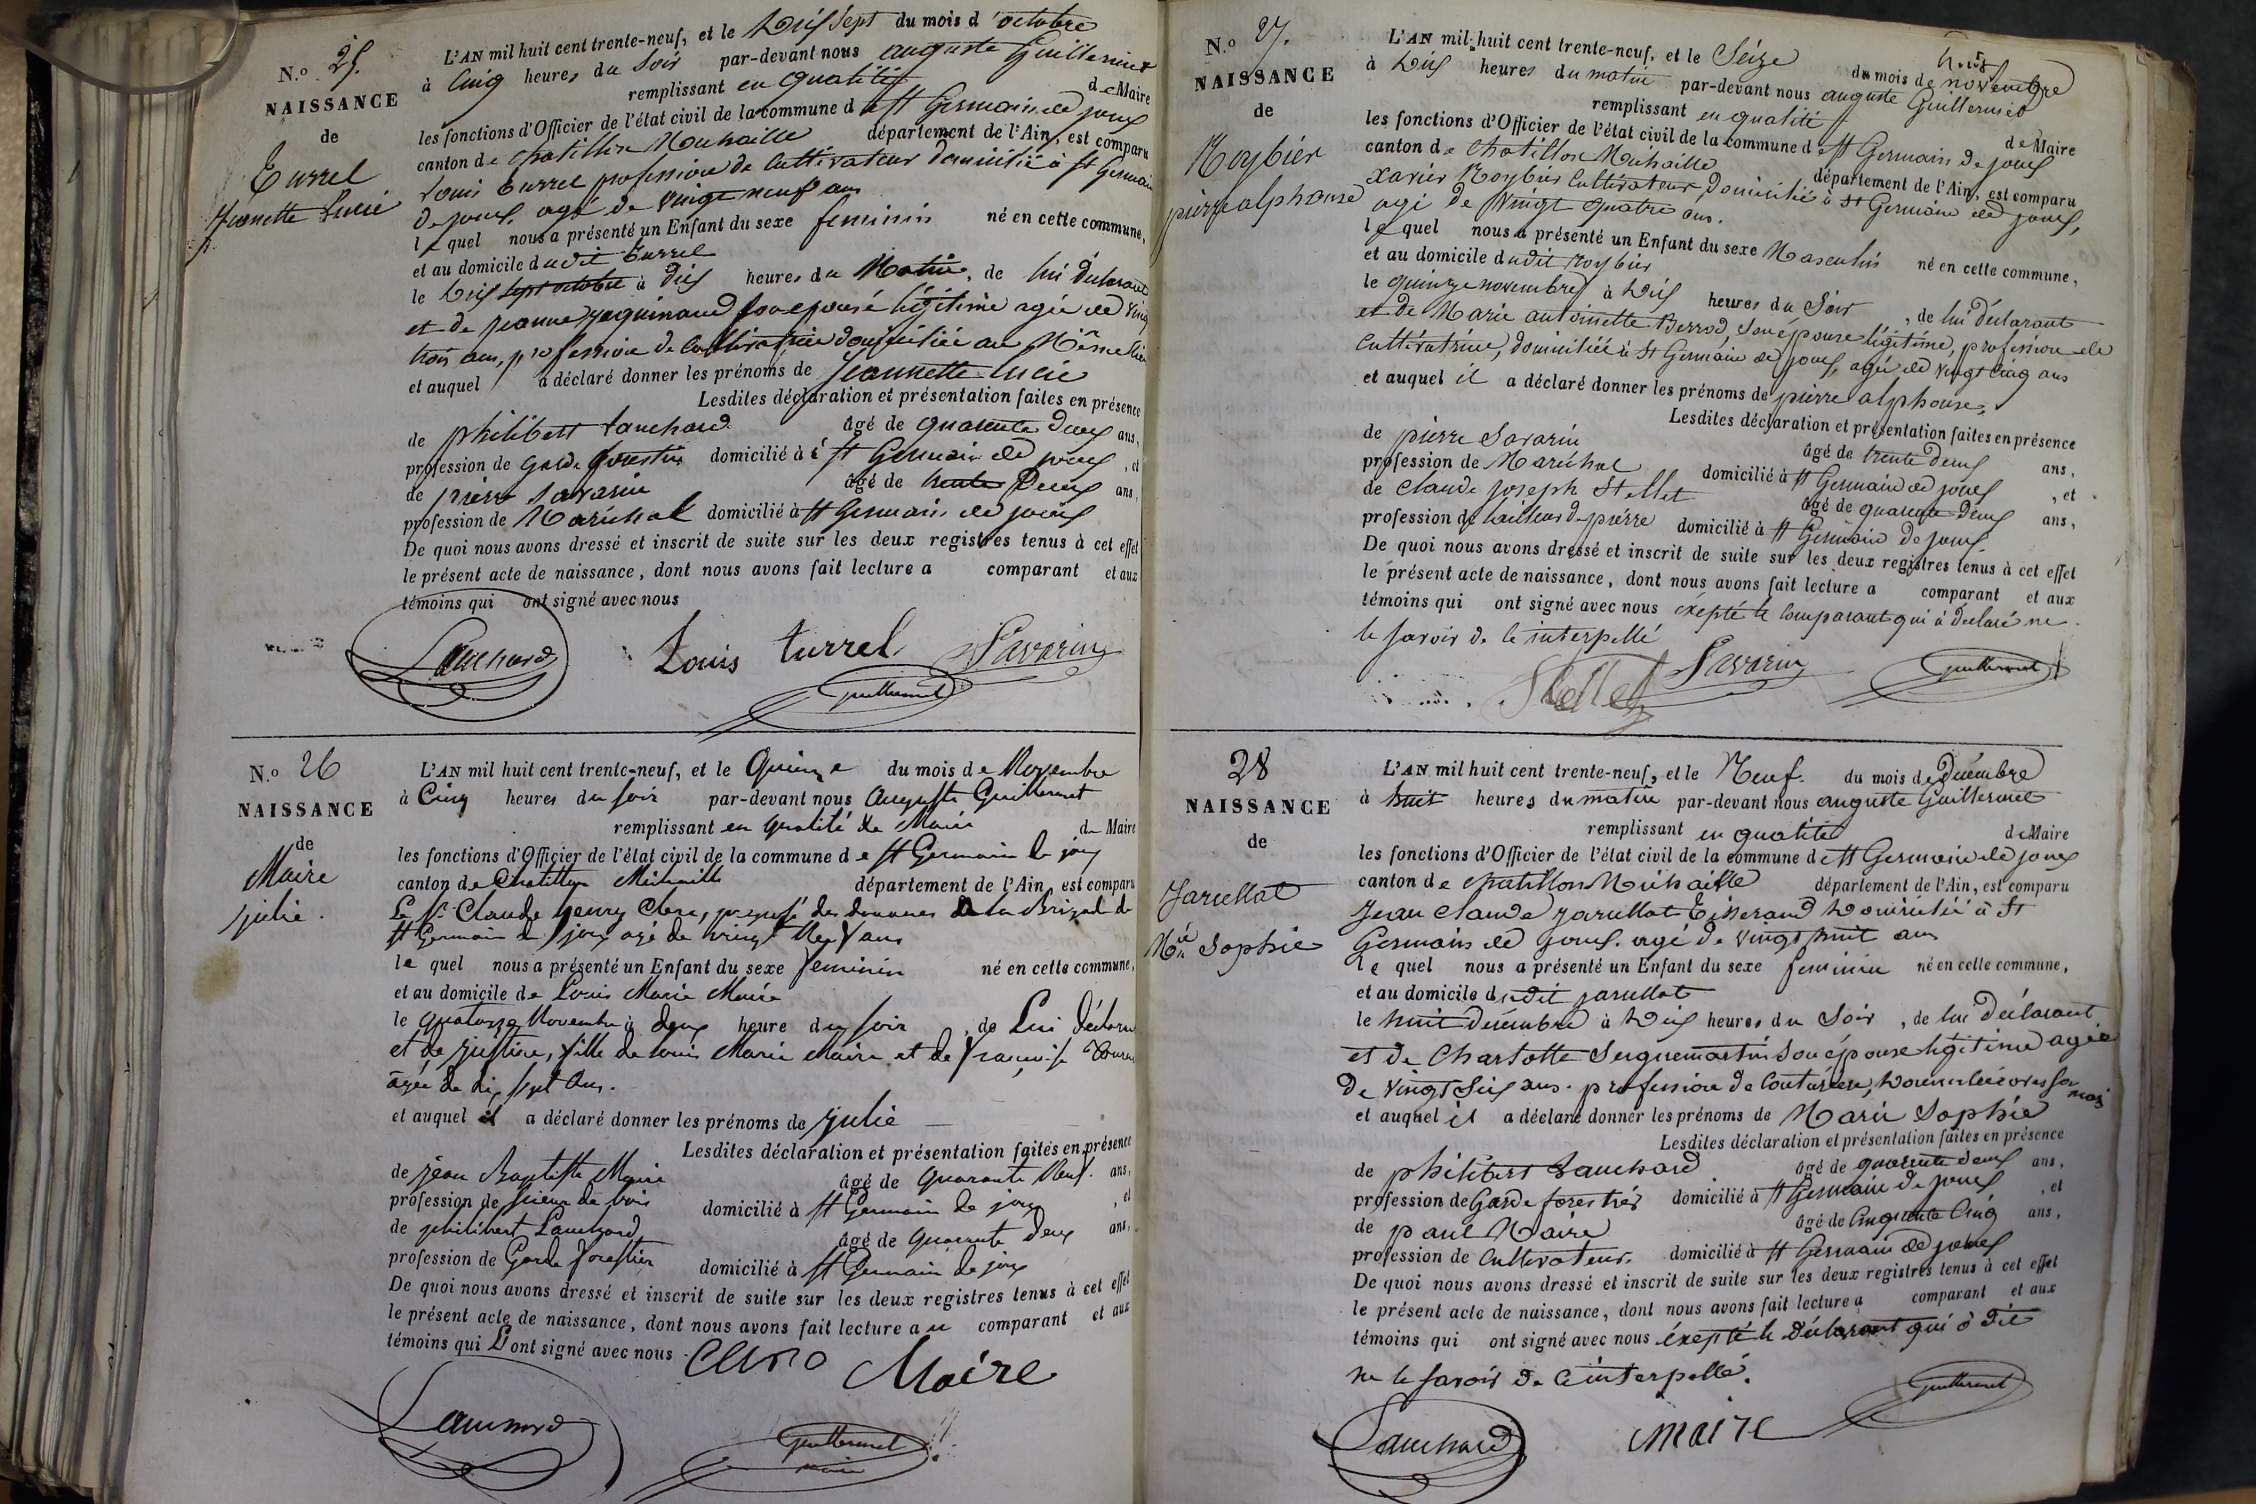 N.o 25.
NAISSANCE
de
Turrel
Jeannette Lucie
L'AN mil huit cent trente-neuf, et le Dix Sept du mois d'octobre
à Cinq heures du Soir par-devant nous auguste Guillermet
remplissant en qualité de Maire
les fonctions d'Officier de l'état civil de la commune de St Germain de joux
canton de Chatillon Michaille département de l'Ain, est comparu
Louis turrel profession de Cultivateur domicilié à St Germain
de joux, agé de vingt neuf ans
lequel nous a présenté un Enfant du sexe feminin né en cette commune,
et au domicile dudit turrel
le Dix Sept octobre à dix heures du Matin, de lui déclarant
et de jeanne son epouse légitime agée de vingt
trois ans, profession de Cultivatrice domiciliée au Même lieu
et auquel a déclaré donner les prénoms de jeannette Lucie
Lesdites déclaration et présentation faites en présence
de philibert Lanchard âgé de quarente Deux ans,
profession de garde forestier domicilié à St Germain de joux, et
de pierre Savarin âgé de trente Deux ans,
profession de Maréchal domicilié à St Germain de joux
De quoi nous avons dressé et inscrit de suite sur les deux registres tenus à cet effet
le présent acte de naissance, dont nous avons fait lecture a comparant et aux
témoins qui ont signé avec nous
Lanchard Louis turrel Savarin
Guillermet
N.o 26
NAISSANCE
de
Maire
julie.
L'AN mil huit cent trente-neuf, et le Quinze du mois de Novembre
à Cinq heures du soir par-devant nous Auguste Guillermet
remplissant en qualité de Maire de Maire
les fonctions d'Officier de l'état civil de la commune de St Germain de joux
canton de Chatillon Michaille département de l'Ain, est comparu
Le Sr Claude henry Clerc, preposé des douanes de la Brigade de
St Germain de joux agé de vingt Neuf ans
lequel nous a présenté un Enfant du sexe feminin né en cette commune,
et au domicile de Louis Marie Maire
le quatorze Novembre à deux heure du soir, de Lui déclarant
et de justine, fille de Louis Marie Maire et de françoise
âgée de dix sept ans.
et auquel il a déclaré donner les prénoms de julie
Lesdites déclaration et présentation faites en présence
de jean Baptiste Maire âgé de quarante Neuf ans,
profession de scieur de bois domicilié à St Germain de joux, et
de philibert Lanchard âgé de quarante deux ans,
profession de Garde forestier domicilié à St Germain de joux
De quoi nous avons dressé et inscrit de suite sur les deux registres tenus à cet effet
le présent acte de naissance, dont nous avons fait lecture au comparant et aux
témoins qui l'ont signé avec nous. Clerc Maire
Lanchard Guillermet
maire
N.o 27.
NAISSANCE
de
Noybier
pierre alphonse
L'AN mil huit cent trente-neuf, et le Seize du mois de novembre
à Dix heures du matin par-devant nous auguste Guillermet
remplissant en qualité de Maire
les fonctions d'Officier de l'état civil de la commune de St Germain de joux
canton de Chatillon Michaille département de l'Ain, est comparu
xavier Noybier Cultivateur, domicilié à St Germain de joux,
agé de vingt quatre ans.
lequel nous a présenté un Enfant du sexe Masculin né en cette commune,
et au domicile dudit Noybier
le quinze novembre à Dix heures du Soir, de lui déclarant
et de Marie antoinette Berrod, son épouse légitime, profession de
Cultivatrice, domiciliée à St Germain de joux, agée de vingt cinq ans
et auquel il a déclaré donner les prénoms de pierre alphonse,
Lesdites déclaration et présentation faites en présence
de pierre Savarin âgé de trente deux ans,
profession de Maréchal domicilié à St Germain de joux, et
de Claude joseph Stellet âgé de quarente Deux ans,
profession de tailleur de pierre domicilié à St Germain de joux.
De quoi nous avons dressé et inscrit de suite sur les deux registres tenus à cet effet
le présent acte de naissance, dont nous avons fait lecture a comparant et aux
témoins qui ont signé avec nous éxepté le Comparant qui à declaré ne
le savoir de ce interpellé
Stellet Savarin Guillermet
28
NAISSANCE
de
Jarullat
Mie Sophie
L'AN mil huit cent trente-neuf, et le Neuf du mois de Décembre
à huit heures du matin par-devant nous auguste Guillermet
remplissant en qualité de Maire
les fonctions d'Officier de l'état civil de la commune de St Germain de joux
canton de Chatillon Michaille département de l'Ain, est comparu
Jean Claude jarullat Tisserand Domicilié à St
Germain de joux. agé de vingt huit ans
lequel nous a présenté un Enfant du sexe feminin né en cette commune,
et au domicile dudit jarullat
le huit Décembre à Dix heures du Soir, de lui Déclarant
et de Charlotte Seignemartin son épouse légitime agée
de vingt Six ans. profession de Couturière, Domiciliée avec son mari
et auquel il a déclaré donner les prénoms de Marie Sophie
Lesdites déclaration et présentation faites en présence
de philibert Lanchard âgé de quarente deux ans,
profession de Garde forestier domicilié à St Germain de joux, et
de paul Maire âgé de Cinquente Cinq ans,
profession de Cultivateur. domicilié à St Germain de joux
De quoi nous avons dressé et inscrit de suite sur les deux registres tenus à cet effet
le présent acte de naissance, dont nous avons fait lecture a comparant et aux
témoins qui ont signé avec nous éxepté le Déclarant qui à dit
ne le savoir de ce interpellé.
Lanchard maire Guillermet